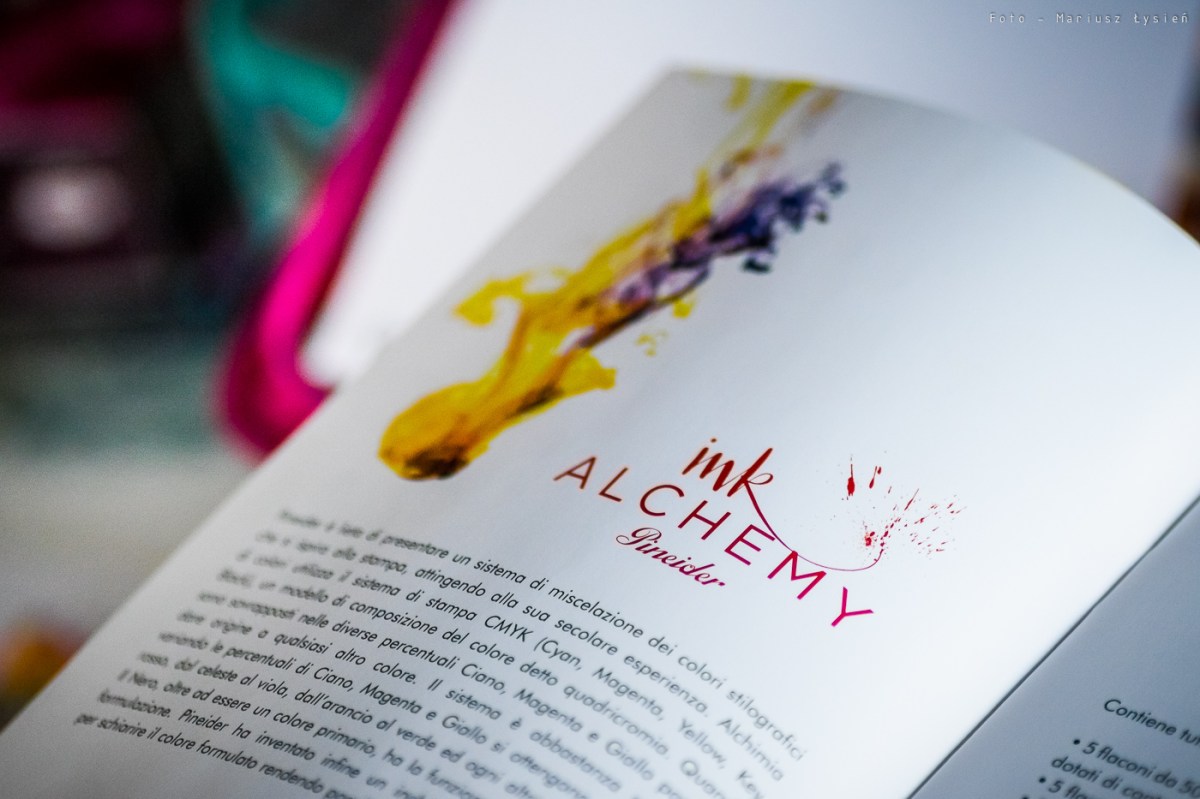 Foto - Mariusz Łysień
ink
ALCHEMY
Pineider
Pineider è lieta di presentare un sistema di miscelazione dei colori stilografici
che si ispira alla stampa, attingendo alla sua secolare esperienza. Alchimia
di colori utilizza il sistema di stampa CMYK (Cyan, Magenta, Yellow, Key
Black), un modello di composizione del colore detto quadricromia. Quan
sono sovrapposti nelle diverse percentuali Ciano, Magenta e Giallo
dare origine a qualsiasi altro colore. Il sistema è abbastanza
variando le percentuali di Ciano, Magenta e Giallo si ottengon
rosso, dal celeste al viola, dall'arancio al verde ed ogni altr
Il Nero, oltre ad essere un colore primario, ha la funzio
formulazione. Pineider ha inventato infine un
per schiarire il colore formulato rendendo
Contiene tut
• 5 flaconi da 50
dotati di
• 5